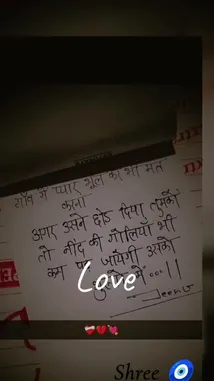 गाँव में प्यार भूल कर भी मत
करना
अगर उसने छोड़ दिया तुमको
तो नींद की गोलियाँ भी
कम पड़ जायेगी उसको
में...!!
Love
Shree